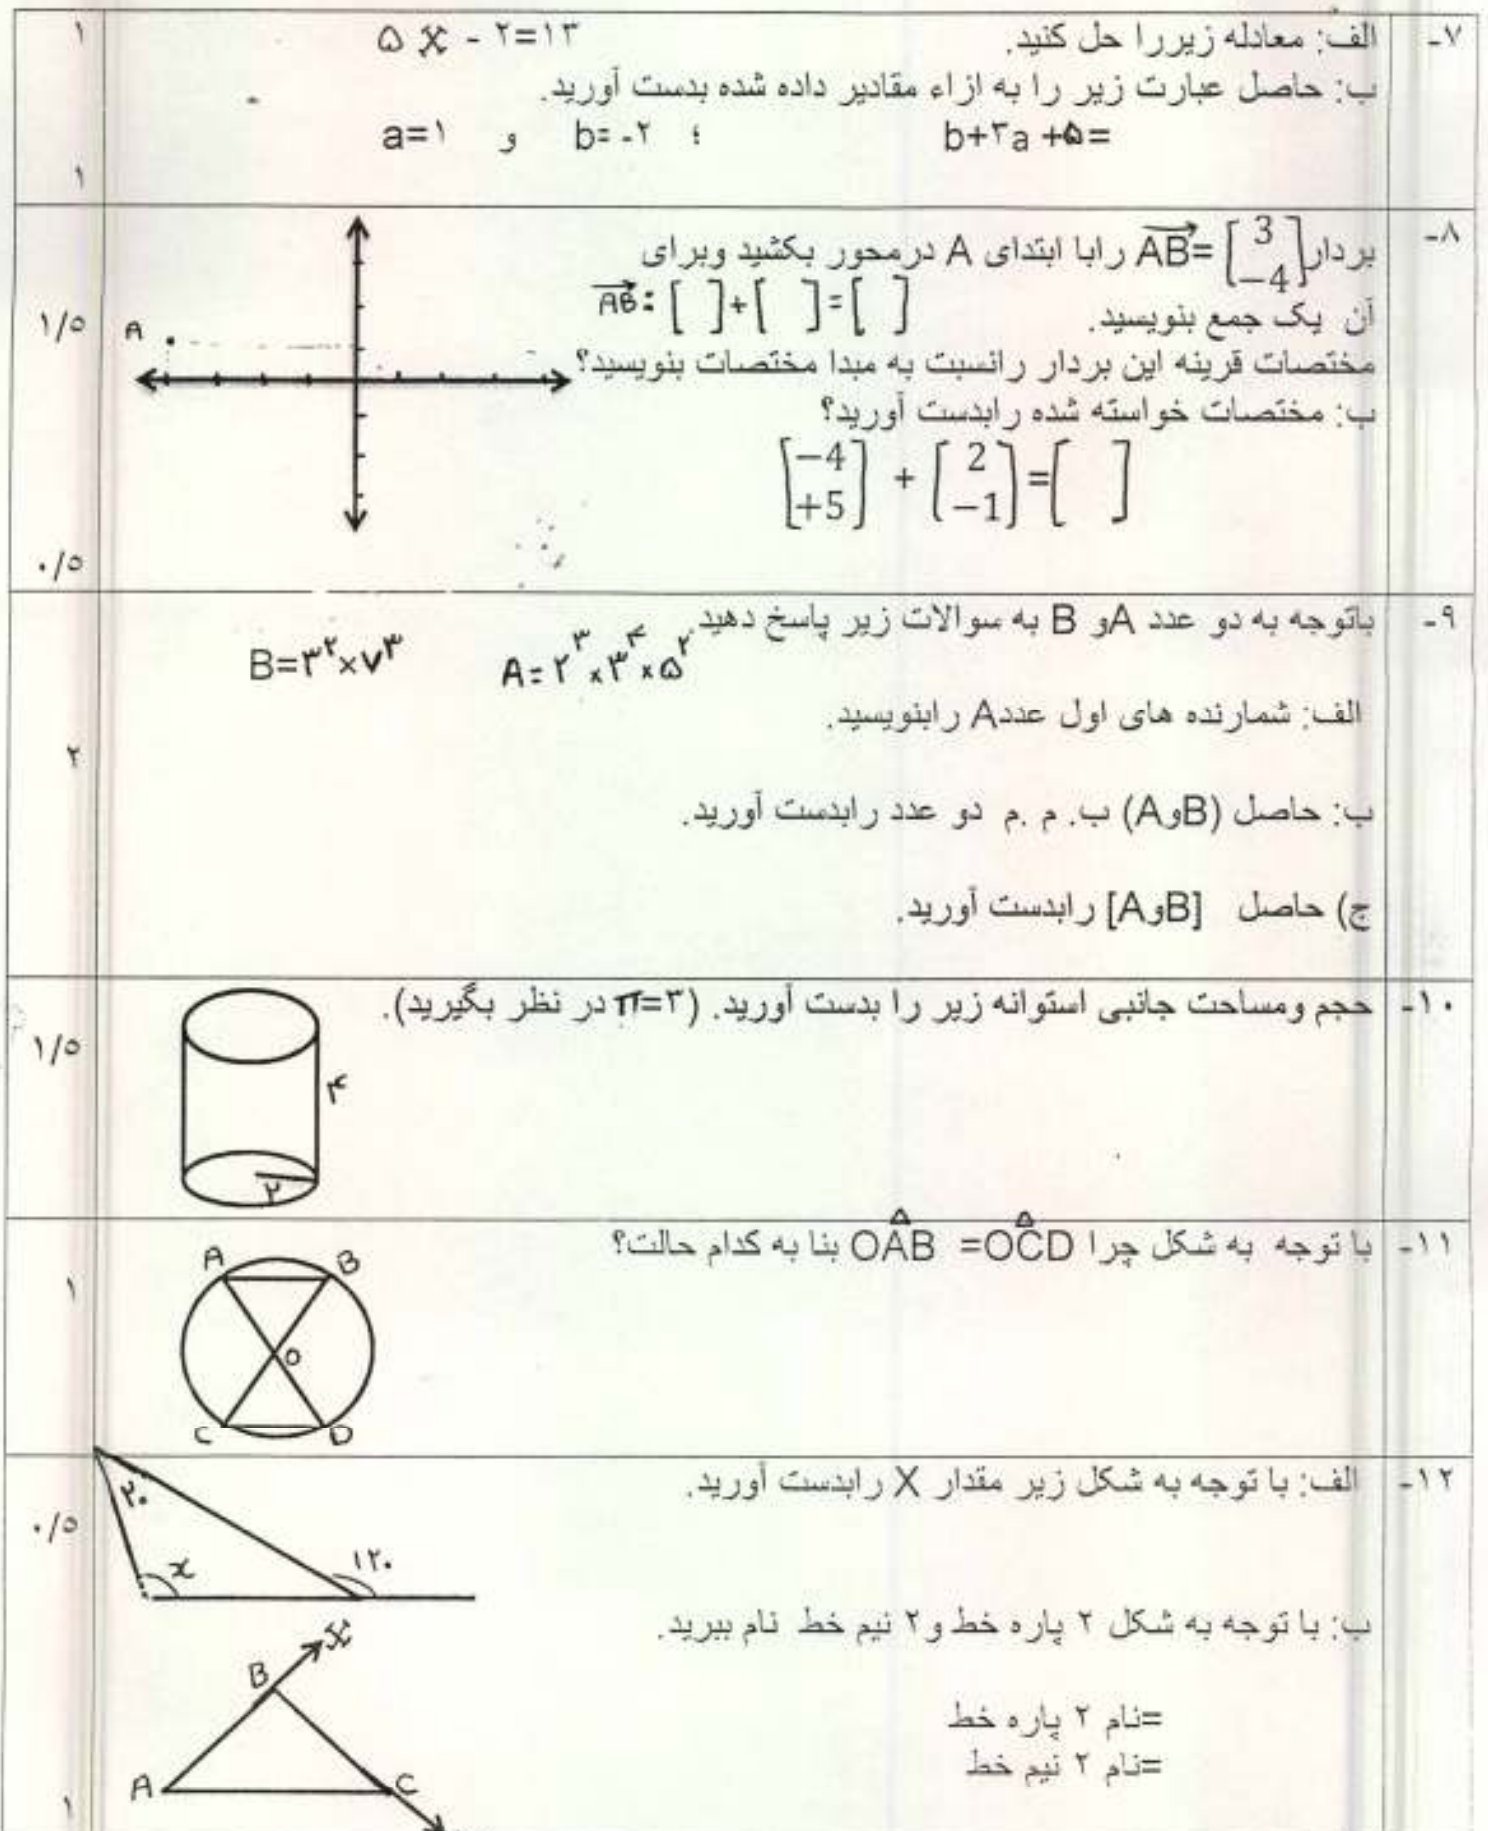 ۷- الف: معادله زیررا حل کنید. ۵x - ۲=۱۳ ۱
ب: حاصل عبارت زیر را به ازاء مقادیر داده شده بدست آورید.
b+۳a +۵= ؛ b= -۲ و a=۱
۱
۸- بردار [3 -4]=AB رابا ابتدای A درمحور بکشید وبرای
آن یک جمع بنویسید. AB: [ ]+[ ]=[ ] ۱/۵
A
مختصات قرینه این بردار رانسبت به مبدا مختصات بنویسید؟
ب: مختصات خواسته شده رابدست آورید؟
[-4 +5] + [2 -1]=[ ]
۰/۵
۹- باتوجه به دو عدد Aو B به سوالات زیر پاسخ دهید.
A= ۲³×۳⁴×۵² B=۳²×۷³
الف: شمارنده های اول عددA رابنویسید.
۲
ب: حاصل (AوB) ب. م .م دو عدد رابدست آورید.
ج) حاصل [AوB] رابدست آورید.
۱۰- حجم ومساحت جانبی استوانه زیر را بدست آورید. (۳=π در نظر بگیرید).
۱/۵
۴
۲
۱۱- با توجه به شکل چرا OAB =OCD بنا به کدام حالت؟
۱
A B
O
C D
۱۲- الف: با توجه به شکل زیر مقدار X رابدست آورید.
۰/۵
۲۰
x ۱۲۰
ب: با توجه به شکل ۲ پاره خط و۲ نیم خط نام ببرید.
x
B
=نام ۲ پاره خط
=نام ۲ نیم خط
A C
۱